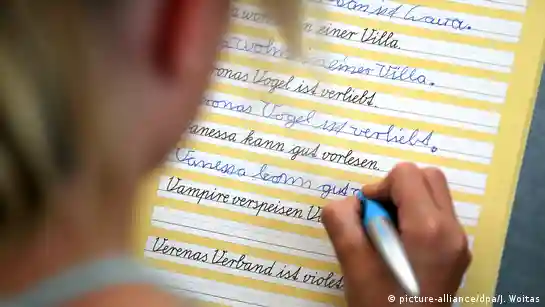 ist Laura.
in einer Villa.
in einer Villa.
onas Vogel ist verliebt.
onas Vogel ist verliebt.
anessa kann gut vorlesen.
Vanessa kann gut
Vampire verspeisen V
Verenas Verband ist violet
© picture-alliance/dpa/J. Woitas